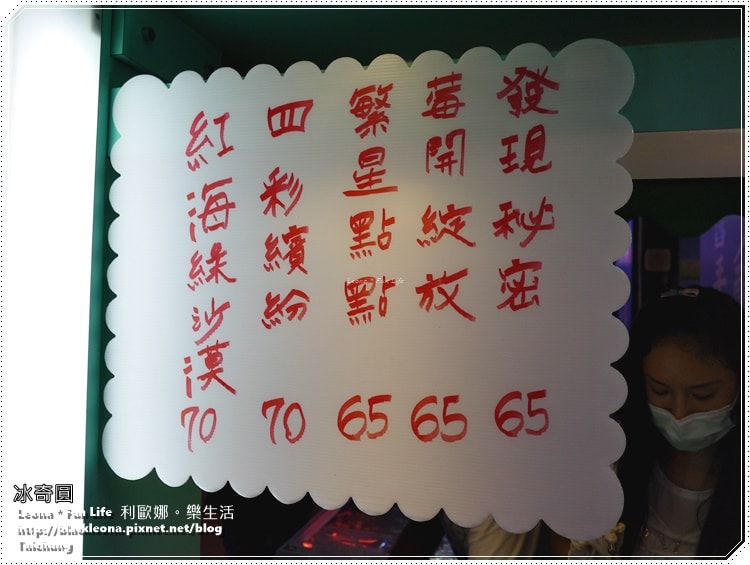 發現秘密 65
莓開綻放 65
繁星點點 65
四彩繽紛 70
紅海綠沙漠 70
冰奇圓
Leona * Fun Life 利歐娜。樂生活
http://blackleona.pixnet.net/blog
Taichung